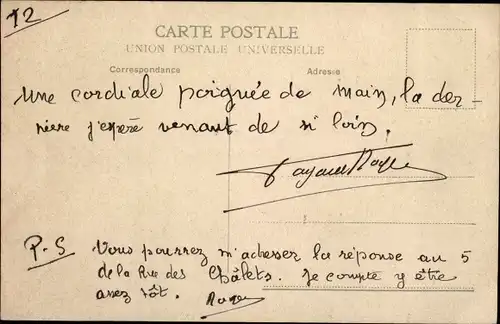 12
CARTE POSTALE
UNION POSTALE UNIVERSELLE
Correspondance Adresse
Une cordiale poignée de main, la der-
nière j'espère venant de si loin.
P.S Vous pourrez m'adresser la réponse au 5
de la Rue des Châlets. Je compte y être
assez tôt. Roger